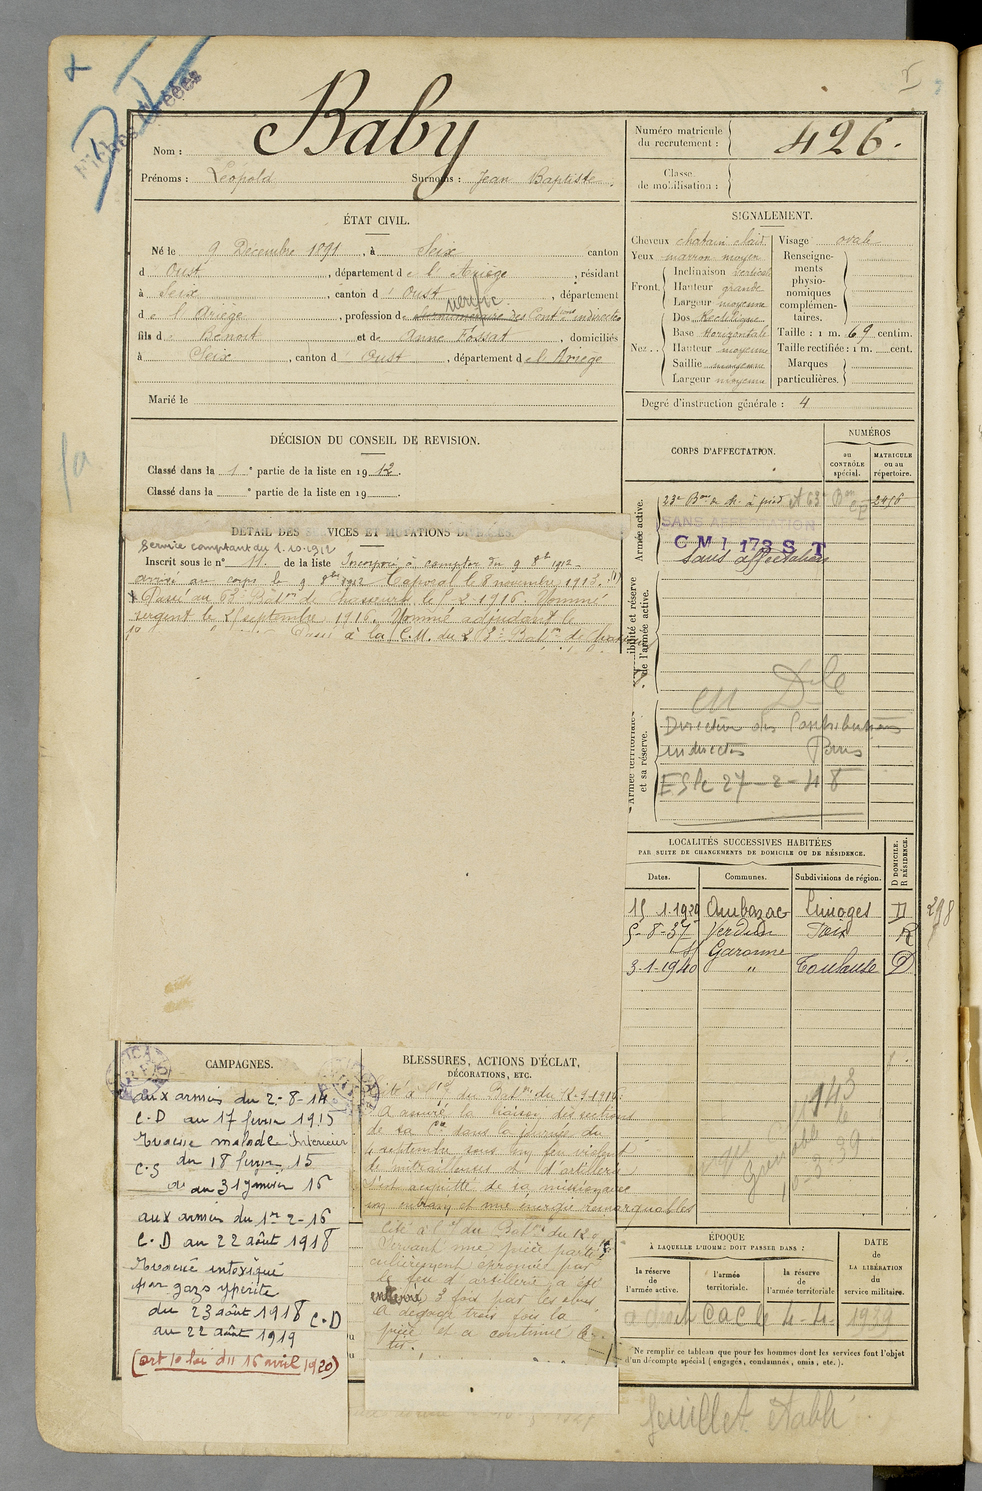 Baby
Nom :
Prénoms : Léopold Surnoms : Jean Baptiste.
Numéro matricule du recrutement : 426.
Classe de mobilisation :
ÉTAT CIVIL.
Né le 9 Décembre 1891, à Seix canton
d Oust, département de l'Ariège, résidant
à Seix, canton d'Oust, département
vérific.
de l'Ariège, profession de surnuméraire des Contons indirectes
fils de Benoit et de Anne Fossat, domiciliés
à Seix, canton d'Oust, département de l'Ariège
Marié le
SIGNALEMENT.
Cheveux chatain clair Visage ovale
Yeux marron moyen
Front. Inclinaison verticale
Hauteur grande
Largeur moyenne
Nez.. Dos Rectiligne
Base Horizontale
Hauteur moyenne
Saillie moyenne
Largeur moyenne
Renseignements physionomiques complémentaires.
Taille : 1 m. 69 centim.
Taille rectifiée : 1 m. cent.
Marques particulières.
Degré d'instruction générale : 4
DÉCISION DU CONSEIL DE REVISION.
Classé dans la 1e partie de la liste en 1912.
Classé dans la e partie de la liste en 19 .
CORPS D'AFFECTATION.
NUMÉROS
au CONTRÔLE spécial.
MATRICULE ou au répertoire.
Armée active.
23e Bon de ch. à pied et 63e Bon 2456
SANS AFFECTATION
C M I 173 S T
Sans affectation
de l'armée active.
Armée territoriale et sa réserve.
en Dle
Direction des Contributions
indirectes Paris
27-2-48
DÉTAIL DES SERVICES ET MUTATIONS DIVERSES.
Service comptant du 1.10.1912
Inscrit sous le n° 11 de la liste Incorporé à compter du 9 8bre 1912-
arrivé au corps le 9 8bre 1912 Caporal le 8 novembre 1913. (1)
Passé au 63e Baton de Chasseurs le 5 2 1916. Nommé
sergent le 25 septembre 1916. Nommé adjudant le
Passé à la C.M. du
LOCALITÉS SUCCESSIVES HABITÉES
PAR SUITE DE CHANGEMENTS DE DOMICILE OU DE RÉSIDENCE.
Dates. Communes. Subdivisions de région. D DOMICILE. R RÉSIDENCE.
15 1.1929 Ambazac Limoges D
5-8-37 Verdun Foix R
s/ Garonne
3-1-1940 " Toulouse D
298
CAMPAGNES.
aux armées du 2-8-14
C.D au 17 février 1915
Evacué malade Intérieur
C.S du 18 février 15
au 31 janvier 16
aux armées du 1er 2-16
C.D au 22 août 1918
Evacué intoxiqué
par gazs ypérite
du 23 août 1918 C.D
au 22 août 1919
(art 10 loi du 16 avril 1920)
BLESSURES, ACTIONS D'ÉCLAT,
DÉCORATIONS, ETC.
Cité à l'o/ du Baton du 12-9-1916.
A assuré la liaison des sections
de sa Cie dans la journée du
4 septembre sous un feu violent
de mitrailleuses et d'artillerie
s'est acquitté de sa mission avec
un entrain et une énergie remarquables
Cité à l'o/ du Baton du
Servant une pièce parti-
culièrement éprouvée par
le feu d'artillerie, a été
enterré 3 fois par les obus,
a dégagé trois fois la
pièce et a continué le
tir.
ÉPOQUE
À LAQUELLE L'HOMME DOIT PASSER DANS :
la réserve de l'armée active. l'armée territoriale. la réserve de l'armée territoriale
DATE de LA LIBÉRATION du service militaire.
1939
Ne remplir ce tableau que pour les hommes dont les services font l'objet
d'un décompte spécial (engagés, condamnés, omis, etc.).
feuillet établi